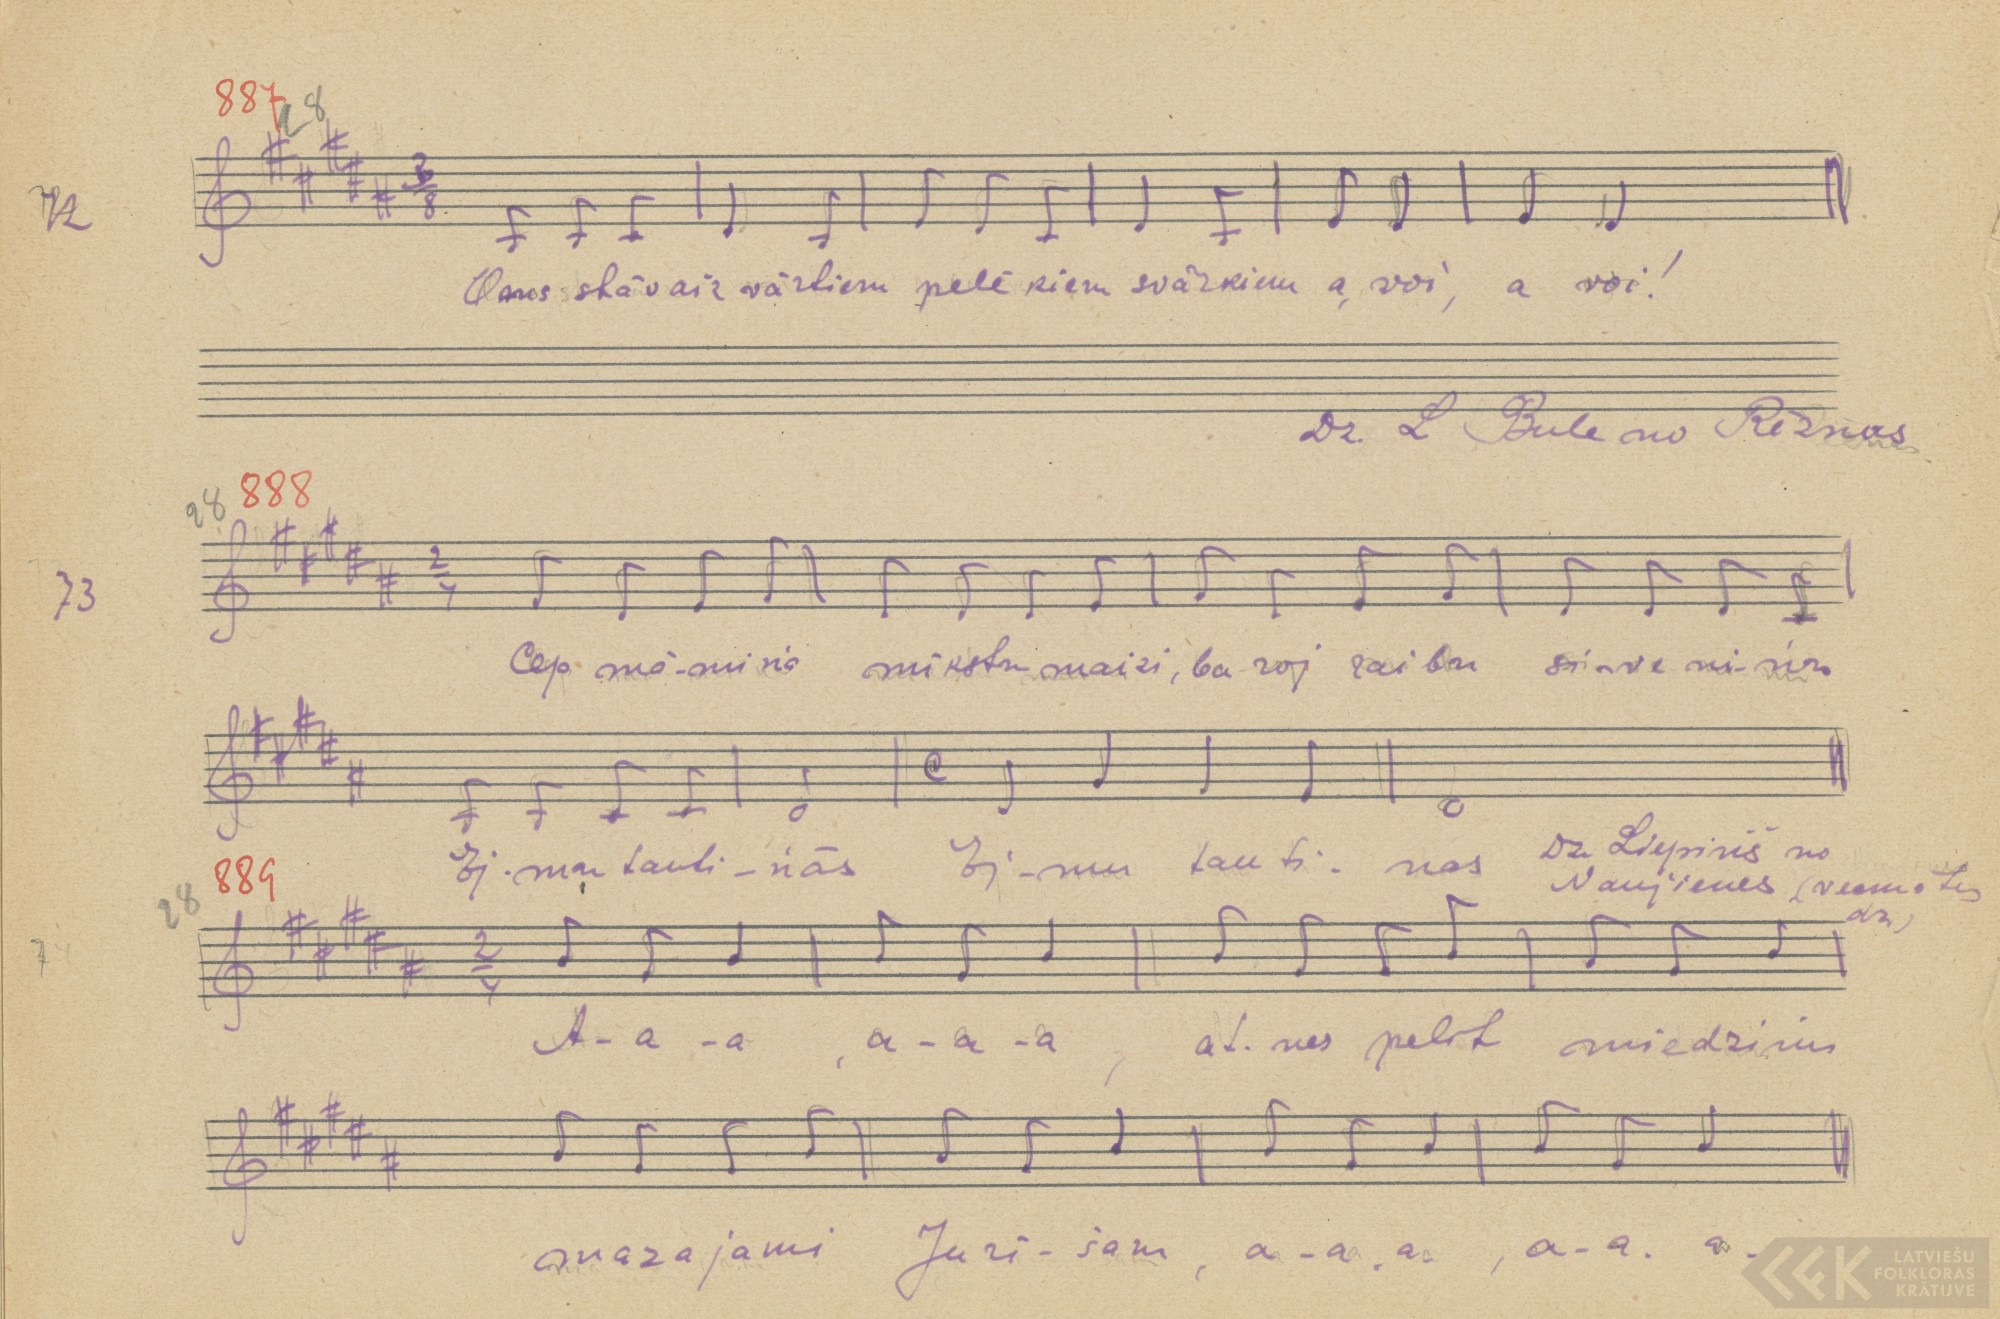 887 28
72
3/8
Vans stāv aiz vārtiem pelē kiem svārkiem a, voi, a voi!
Dz. L Bule no Rēznas
28 888
73
2/4
Cep mā-miņa mikstu maizi, ba-roj rai bu si-ve ni-ņu
Zj-mu tauti-ņās Zj-mu tau ti- nas
Dz. Liepiņš no
Naujienes (veemātes
dz.)
28 889
7
2/4
A-a -a, a-a-a, at-nes pelīt miedziņu
mazajami Juri-šam, a-a.a., a-a. a.
LATVIEŠU
FOLKLORAS
KRĀTUVE